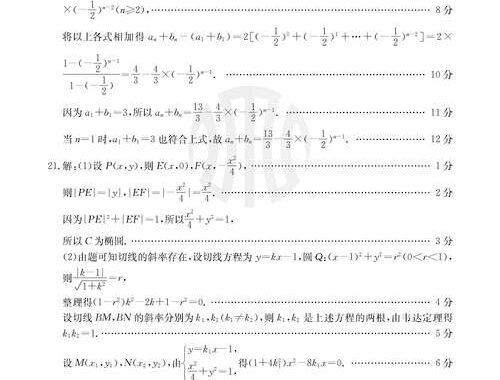 ×(-1/2)^{n-2}(n≥2),……8分
将以上各式相加得 a_n+b_n-(a_1+b_1)=2[(-1/2)^0+(-1/2)^1+…+(-1/2)^{n-2}]=2×
(1-(-1/2)^{n-1})/(1-(-1/2))=4/3-4/3×(-1/2)^{n-1}.……10分
因为a_1+b_1=3,所以a_n+b_n=13/3-4/3×(-1/2)^{n-1}.……11分
当n=1时,a_1+b_1=3也符合上式,故a_n+b_n=13/3-4/3×(-1/2)^{n-1}.……12分
21.解:(1)设P(x,y),则E(x,0),F(x,-x²/4),……1分
则|PE|=|y|,|EF|=|-x²/4|=x²/4.……2分
因为|PE|²+|EF|=1,所以x²/4+y²=1,
所以C为椭圆.……3分
(2)由题可知切线的斜率存在,设切线方程为y=kx-1,圆Q:(x-1)²+y²=r²(0<r<1),
则|k-1|/√(1+k²)=r,
整理得(1-r²)k²-2k+1-r²=0.……4分
设切线BM,BN的斜率分别为k_1,k_2(k_1≠k_2),则k_1,k_2是上述方程的两根,由韦达定理得
k_1k_2=1.……5分
设M(x_1,y_1),N(x_2,y_2),由{y=k_1x-1, x²/4+y²=1,得(1+4k_1²)x²-8k_1x=0.……6分